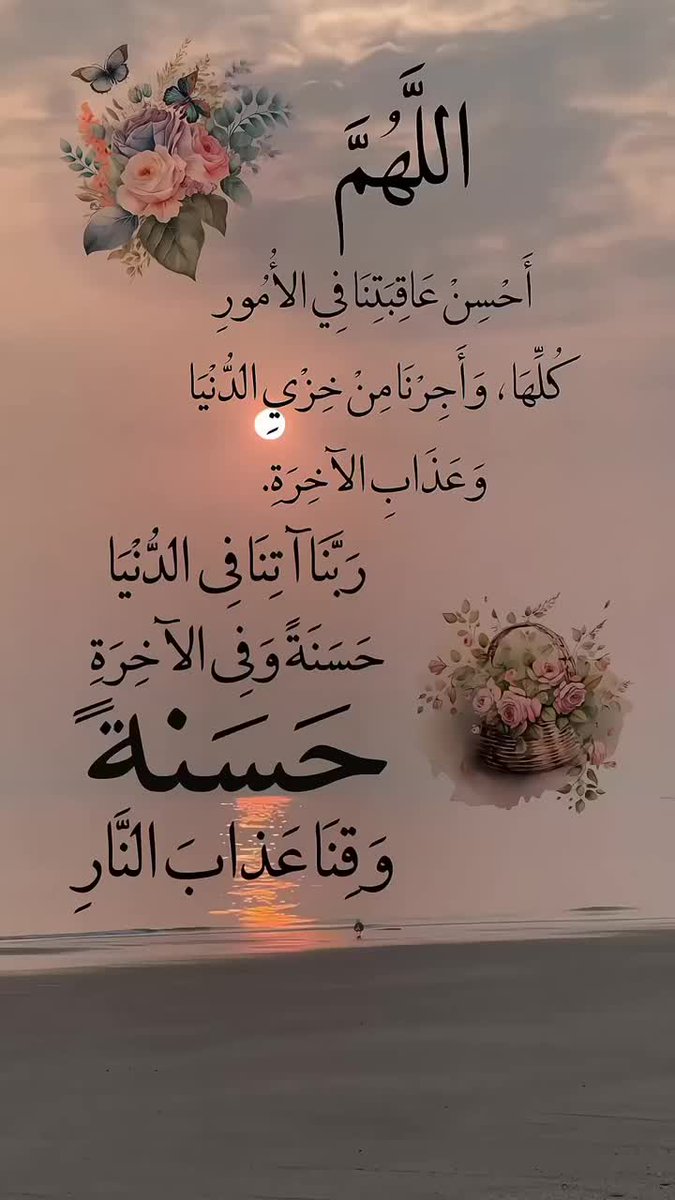 اللَّهُمَّ
أَحْسِنْ عَاقِبَتِنَا فِي الأُمُورِ
كُلِّهَا، وَأَجِرْنَا مِنْ خِزْيِ الدُّنْيَا
وَعَذَابِ الآخِرَةِ.
رَبَّنَا آتِنَا فِى الدُّنْيَا
حَسَنَةً وَفِى الآخِرَةِ
حَسَنةً
وَقِنَا عَذابَ النَّارِ